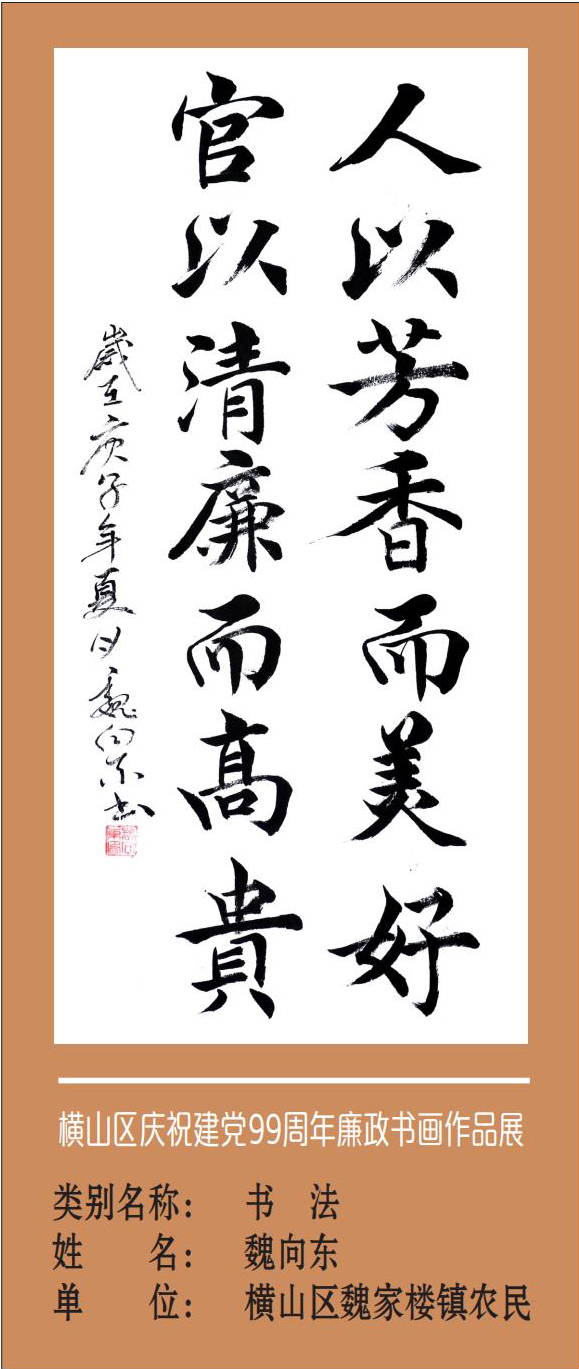 人以芳香而美好
官以清廉而高貴
歲在庚子年夏月魏向东书
横山区庆祝建党99周年廉政书画作品展
类别名称： 书 法
姓 名： 魏向东
单 位： 横山区魏家楼镇农民